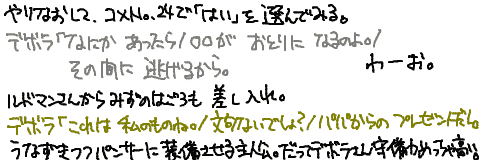 やりなおして、コメNo.24で「はい」を選んでみる。
デボラ「なにか あったら/〇〇が おとりに なるのよ。/
その間に 逃げるから。
わーお。
ルドマンさんからみずのはごろも差し入れ。
デボラ「これは 私のものね。/文句ないでしょ?/パパからの プレゼントだし。
うなずきつつパンサーに装備させる主人公。だってデボラさん守備力めっさ高い。